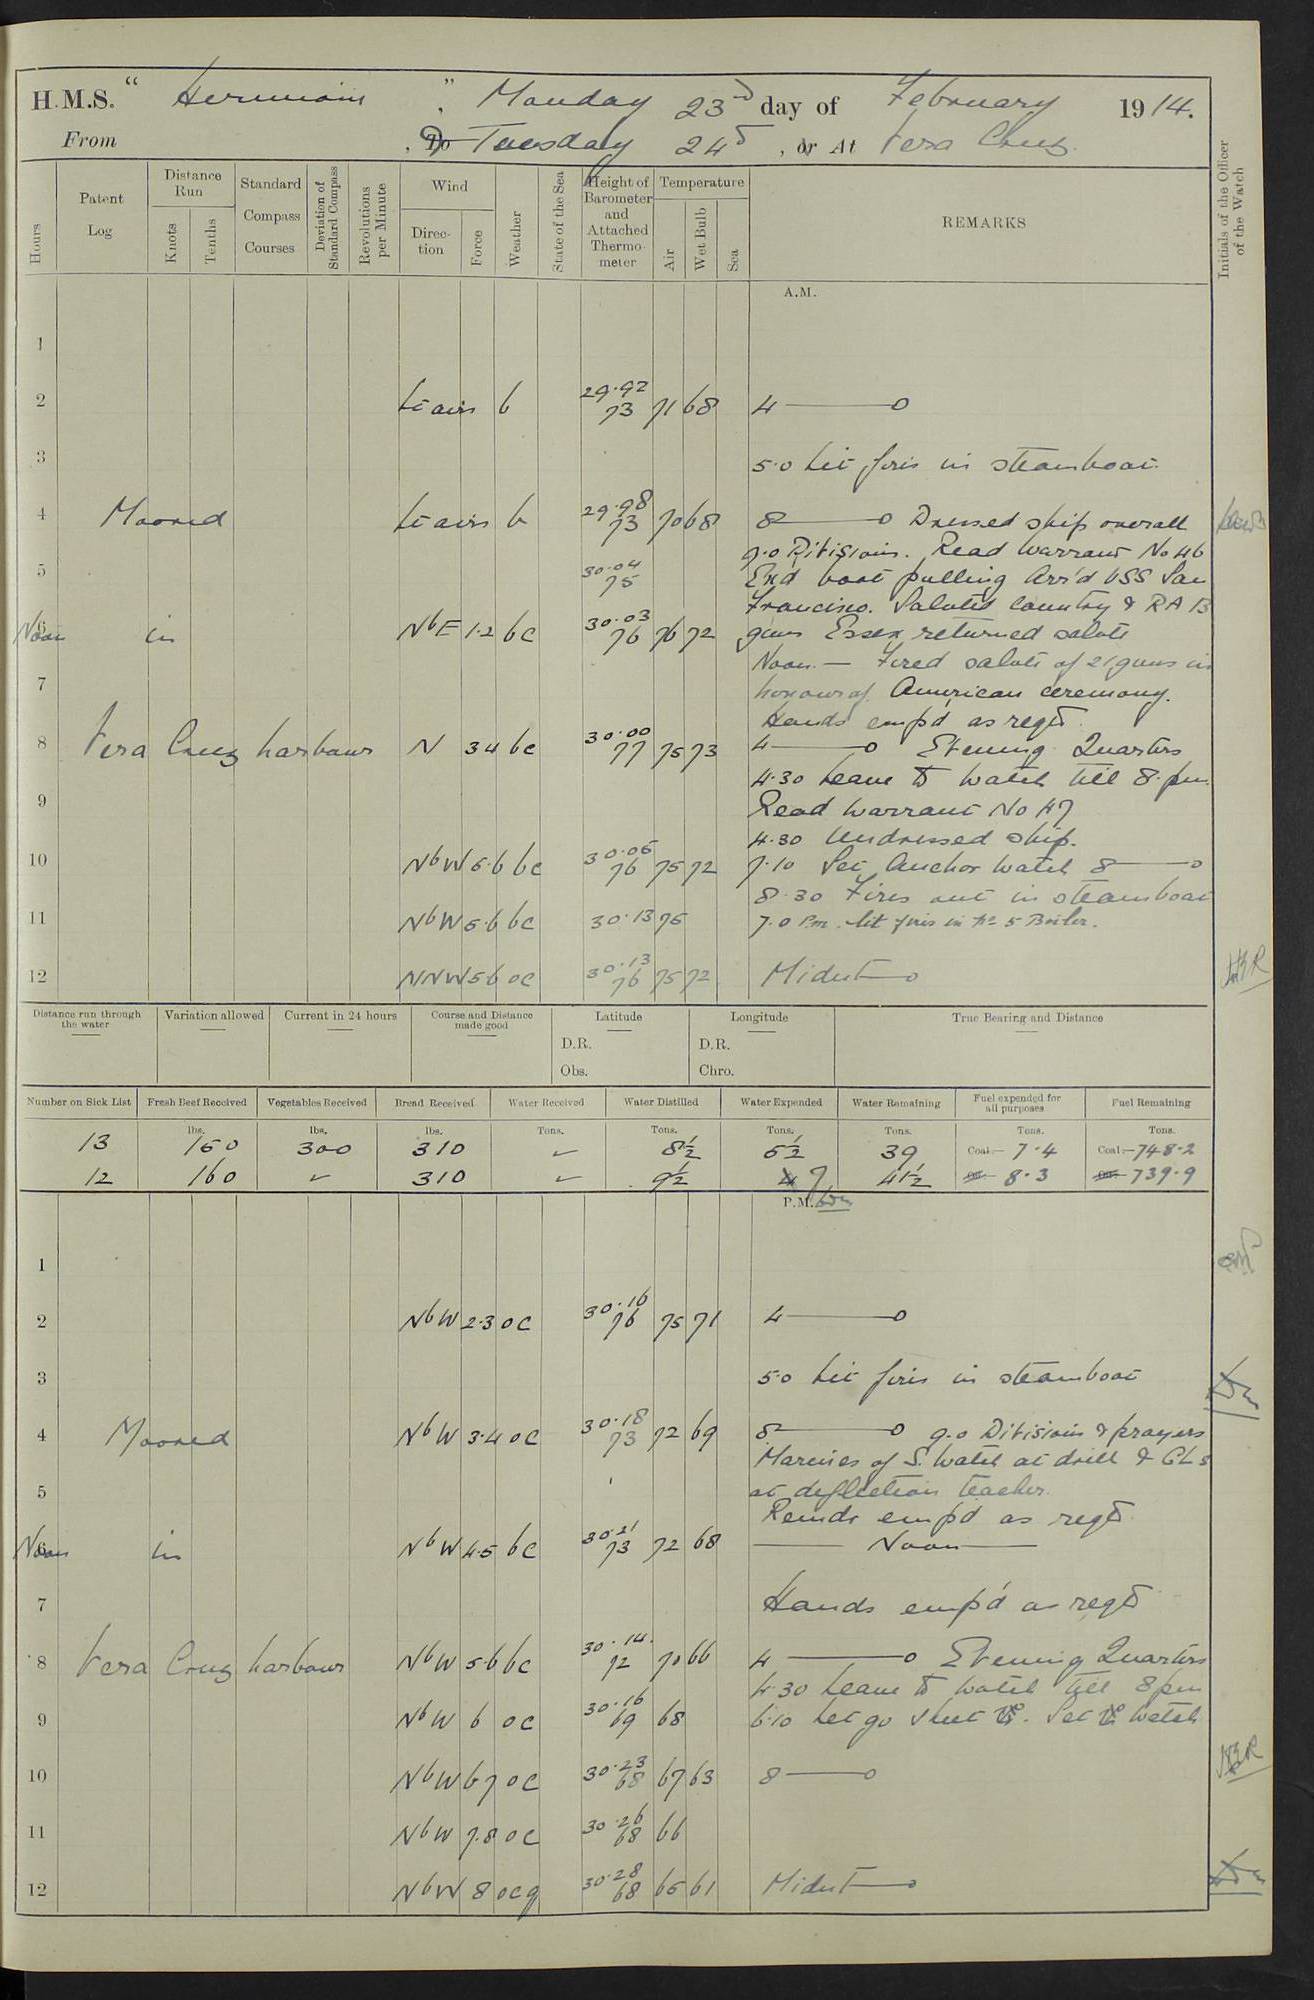 H.M.S. " Hermione ", Monday 23rd day of February 1914.
From , To & Tuesday 24th , or At Vera Cruz.
Hours
Patent Log
Distance Run
Knots
Tenths
Standard Compass Courses
Deviation of Standard Compass
Revolutions per Minute
Wind
Direction
Force
Weather
State of the Sea
Height of Barometer and Attached Thermometer
Temperature
Air
Wet Bulb
Sea
REMARKS
Initials of the Officer of the Watch
A.M.
1
2 Lt airs b 29.92 73 71 68 4 ——o
3 5.0 Lit fires in steamboat.
4 Moored Lt airs b 29.98 73 70 68 8 ——o Dressed ship overall
9.0 Divisions. Read Warrant No 46
5 30.04 75 End boat pulling Arr'd USS San
Francisco. Saluted Country & RA 13
Noon in NbE 1.2 bc 30.03 76 76 72 guns Essex returned salute
Noon — Fired salute of 21 guns in
7 honour of American ceremony.
Hands emp'd as reqd.
8 Vera Cruz harbour N 3 4 bc 30.00 77 75 73 4 ——o Evening Quarters
4.30 Leave to watch till 8.pm.
9 Read Warrant No 47
4.30 Undressed ship.
10 NbW 5.6 bc 30.06 76 75 72 7.10 Set Anchor Watch 8 ——o
8.30 Fires out in steamboat
11 NbW 5.6 bc 30.13 75 7.0 Pm. Lit fires in No 5 Boiler.
12 NNW 5.6 oc 30.13 76 75 72 Midnt ——o
Distance run through the water
Variation allowed
Current in 24 hours
Course and Distance made good
Latitude
D.R.
Obs.
Longitude
D.R.
Chro.
True Bearing and Distance
Number on Sick List
Fresh Beef Received
Vegetables Received
Bread Received
Water Received
Water Distilled
Water Expended
Water Remaining
Fuel expended for all purposes
Fuel Remaining
lbs. lbs. lbs. Tons. Tons. Tons. Tons. Tons. Tons.
13 150 300 310 ✓ 8½ 5½ 39 Coal— 7.4 Coal— 748.2
12 160 ✓ 310 ✓ 9½ 7 41½ Oil— 8.3 Oil— 739.9
P.M.
1
2 NbW 2.3 oc 30.16 76 75 71 4 ——o
3 5.0 Lit fires in steamboat
4 Moored NbW 3.4 oc 30.18 73 72 69 8 ——o 9.0 Divisions & prayers
Marines of S. Watch at drill & GLs
5 at deflection teacher.
Remdr emp'd as reqd
Noon in NbW 4.5 bc 30.21 73 72 68 —— Noon ——
7 Hands emp'd as reqd
8 Vera Cruz harbour NbW 5.6 bc 30.14 72 70 66 4 ——o Evening Quarters
4.30 Leave to watch till 8pm
9 NbW 6 oc 30.16 69 68 6.10 Let go sheet Set Watch
10 NbW 6 7 oc 30.23 68 67 63 8 ——o
11 NbW 7.8 oc 30.26 68 66
12 NbW 8 ocq 30.28 68 65 61 Midnt ——o